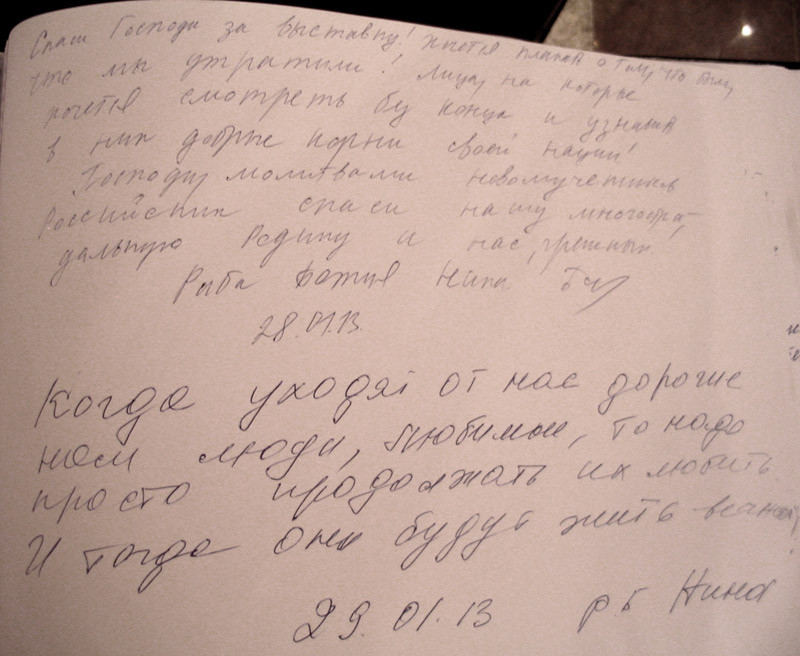 Спаси Господи за выставку! Хочется плакать о том, что было,
что мы утратили! Лица, на которые
хочется смотреть бу конца и узнавая
в них добрые корни своей нации!
Господи, молитвами новомучеников
Российских спаси нашу многостра-
дальную Родину и нас, грешных
Раба Божия Нина
28.01.13.
Когда уходят от нас дорогие
нам люди, любимые, то надо
просто продолжать их любить
И тогда они будут жить вечно,
29.01.13 рб Нина